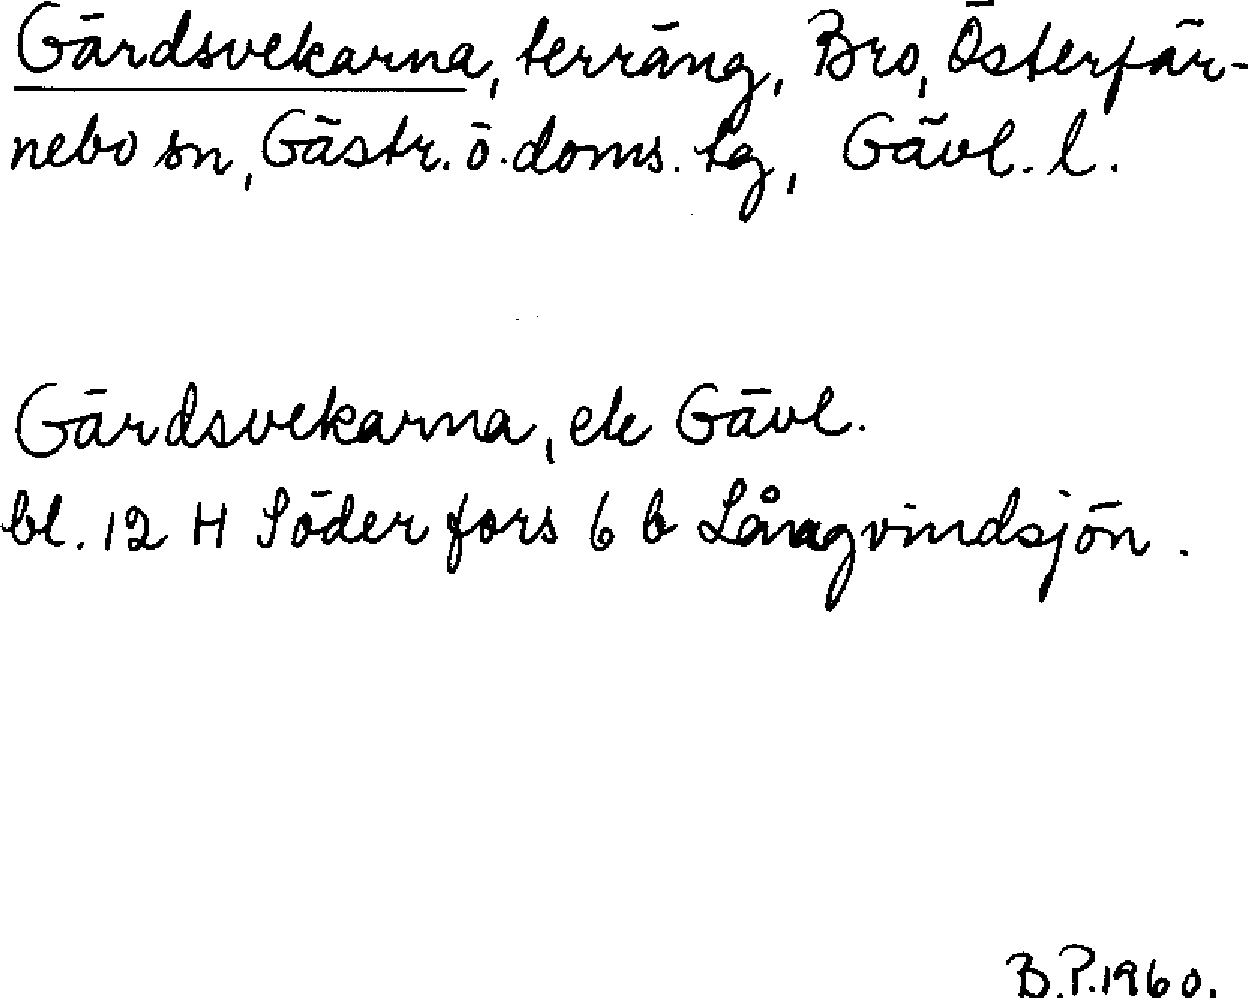 Gärdsvekarna, terräng, Bro, Österfär-
nebo sn, Gästr. ö. doms. tg, Gävl. l.
Gärdsvekarna, ek Gävl.
bl. 12 H Söderfors 6 b Långvindsjön.
B.P. 1960.